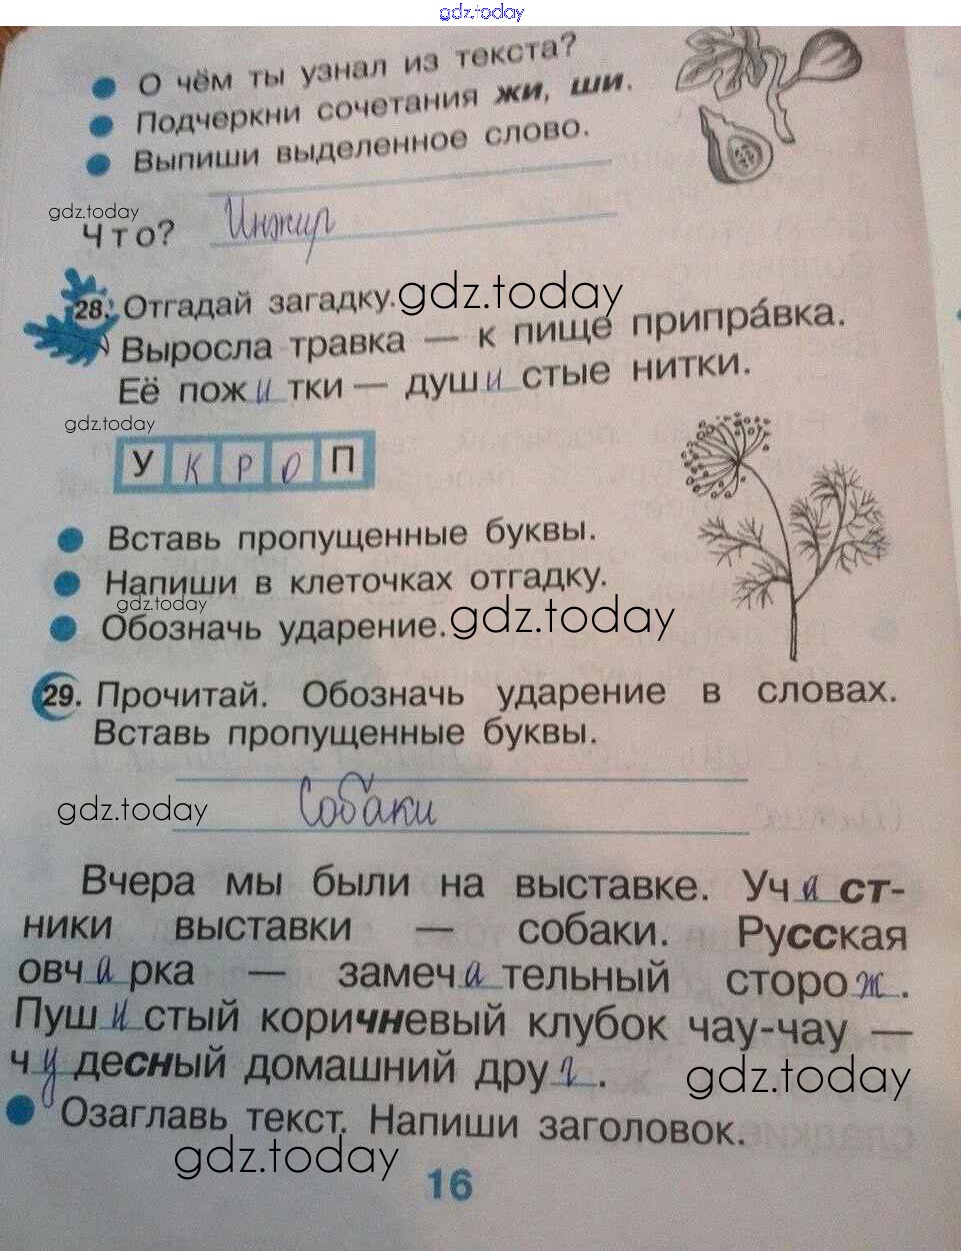 gdz.today
О чём ты узнал из текста?
Подчеркни сочетания жи, ши.
Выпиши выделенное слово.
gdz.today
Что? Инжир
28. Отгадай загадку. gdz.today
Выросла травка — к пище припра́вка.
Её пожитки — душистые нитки.
gdz.today
УКРОП
Вставь пропущенные буквы.
Напиши в клеточках отгадку.
gdz.today
Обозначь ударение. gdz.today
29. Прочитай. Обозначь ударение в словах.
Вставь пропущенные буквы.
gdz.today Собаки
Вчера мы были на выставке. Участ-
ники выставки — собаки. Русская
овчарка — замечательный сторож.
Пушистый коричневый клубок чау-чау —
чудесный домашний друг.
gdz.today
Озаглавь текст. Напиши заголовок.
gdz.today
16